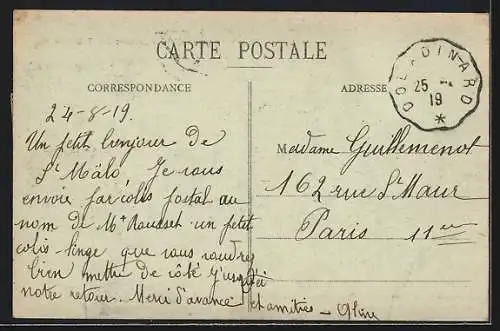 CARTE POSTALE
CORRESPONDANCE
ADRESSE
DOL A DINARD
25
19
*
24-8-19.
Un petit bonjour de
St Mâlo. Je vous
envoie par colis postal au
nom de Mt Rousset un petit
colis-linge que vous voudrez
bien mettre de côté jusqu'à
notre retour. Merci d'avance et amitiés -
Madame Guillemenot
162 rue St Maur
Paris 11e